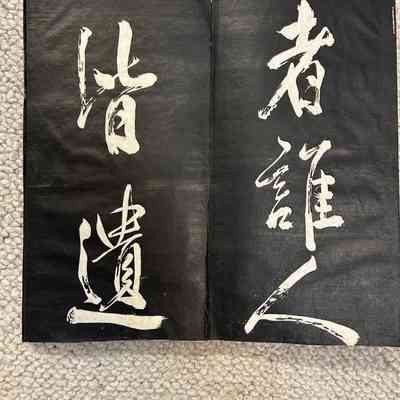 者誰人
皆遺